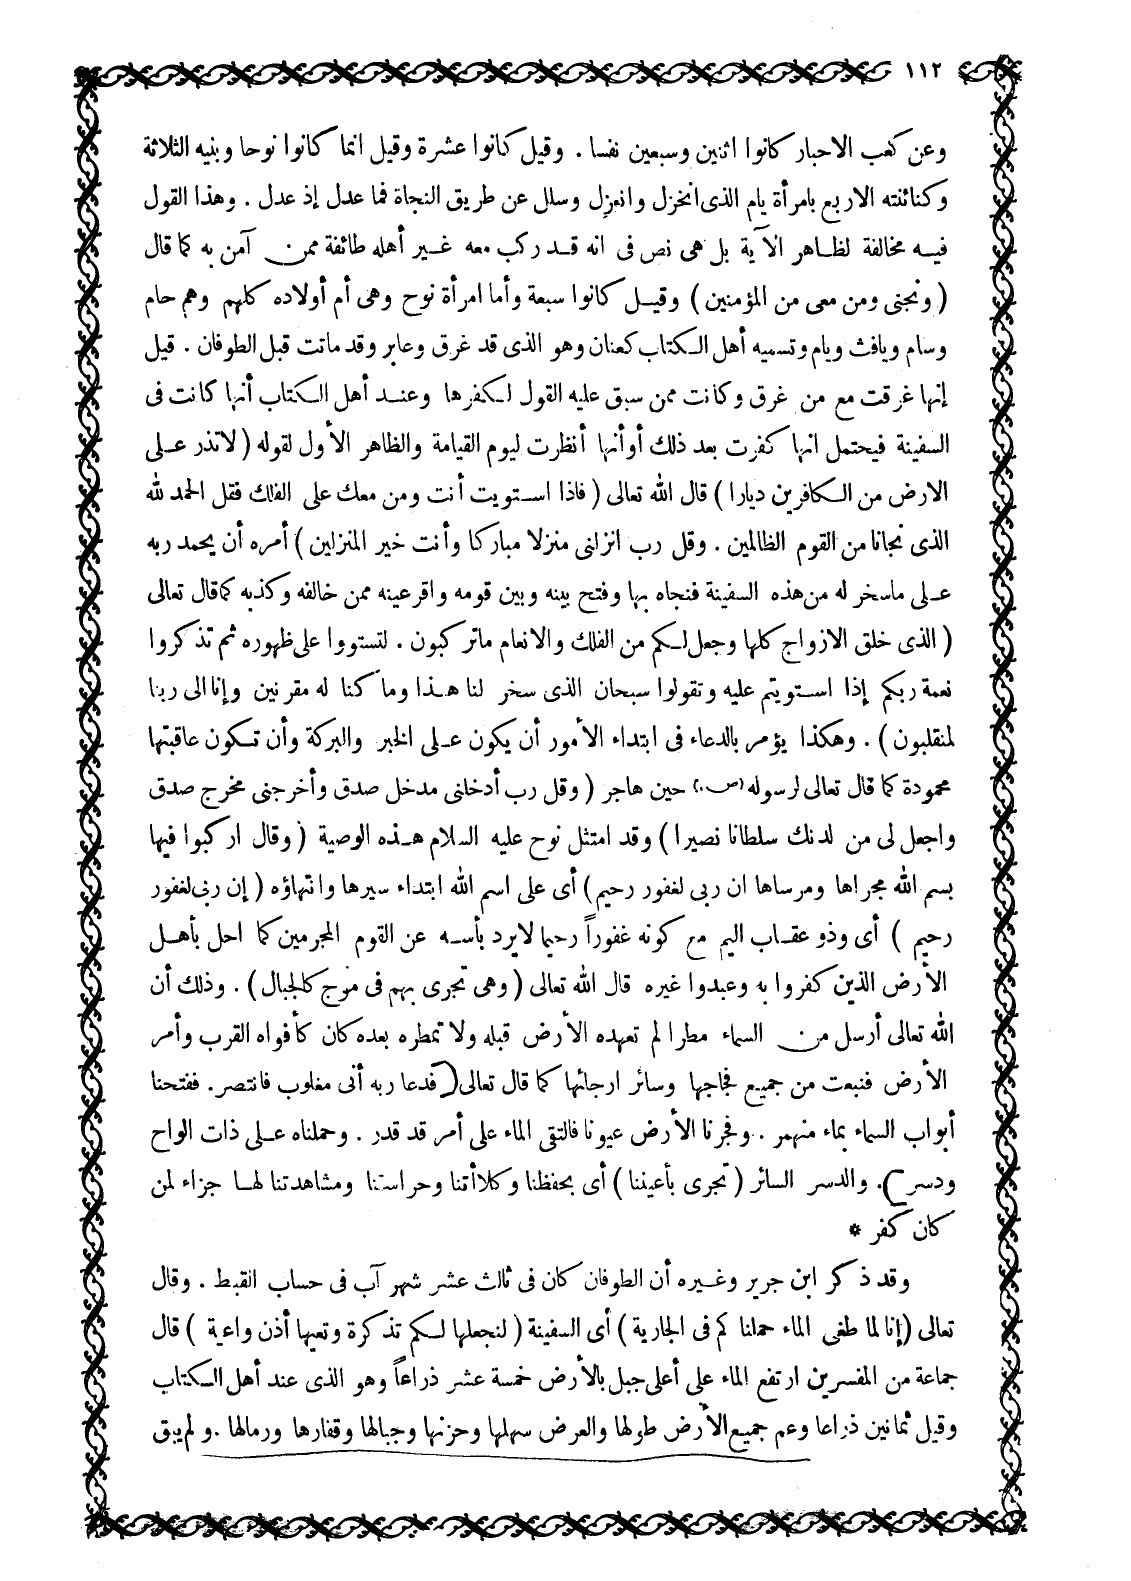 ١١٢
وعن كعب الاحبار كانوا اثنين وسبعين نفسا . وقيل كانوا عشرة وقيل انما كانوا نوحا وبنيه الثلاثة
وكنائنه الاربع بامرأة يام الذى انخزل وانعزل وسلل عن طريق النجاة فما عدل إذ عدل . وهذا القول
فيه مخالفة لظاهر الآية بل هى نص فى انه قد ركب معه غير أهله طائفة ممن آمن به كما قال
( ونجنى ومن معى من المؤمنين ) وقيل كانوا سبعة وأما امرأة نوح وهى أم أولاده كلهم وهم حام
وسام ويافث ويام وتسميه أهل الكتاب كنعان وهو الذى قد غرق وعابر وقد ماتت قبل الطوفان . قيل
إنها غرقت مع من غرق وكانت ممن سبق عليه القول لكفرها وعند أهل الكتاب أنها كانت فى
السفينة فيحتمل انها كفرت بعد ذلك أو أنها أنظرت ليوم القيامة والظاهر الأول لقوله ( لاتذر على
الارض من الكافرين ديارا ) قال الله تعالى ( فاذا استويت أنت ومن معك على الفلك فقل الحمد لله
الذى نجانا من القوم الظالمين . وقل رب انزلنى منزلا مباركا وأنت خير المنزلين ) أمره أن يحمد ربه
على ماسخر له من هذه السفينة فنجاه بها وفتح بينه وبين قومه واقر عينه ممن خالفه وكذبه كما قال تعالى
( الذى خلق الازواج كلها وجعل لكم من الفلك والانعام ماتركبون . لتستووا على ظهوره ثم تذكروا
نعمة ربكم إذا استويتم عليه وتقولوا سبحان الذى سخر لنا هذا وماكنا له مقرنين وإنا الى ربنا
لمنقلبون ) . وهكذا يؤمر بالدعاء فى ابتداء الأمور أن يكون على الخير والبركة وأن تكون عاقبتها
محمودة كما قال تعالى لرسوله (ص.) حين هاجر ( وقل رب أدخلنى مدخل صدق وأخرجنى مخرج صدق
واجعل لى من لدنك سلطانا نصيرا ) وقد امتثل نوح عليه السلام هذه الوصية ( وقال اركبوا فيها
بسم الله مجراها ومرساها ان ربى لغفور رحيم ) أى على اسم الله ابتداء سيرها وانتهاؤه ( إن ربى لغفور
رحيم ) أى وذو عقاب اليم مع كونه غفوراً رحيما لايرد بأسه عن القوم المجرمين كما احل بأهل
الأرض الذين كفروا به وعبدوا غيره قال الله تعالى ( وهى تجرى بهم فى موج كالجبال ) . وذلك أن
الله تعالى أرسل من السماء مطرا لم تعهده الأرض قبله ولا تمطره بعده كان كأفواه القرب وأمر
الأرض فنبعت من جميع فجاجها وسائر ارجائها كما قال تعالى ( فدعا ربه أنى مغلوب فانتصر . ففتحنا
أبواب السماء بماء منهمر . وفجرنا الأرض عيونا فالتقى الماء على أمر قد قدر . وحملناه على ذات الواح
ودسر ) . والدسر السائر ( تجرى بأعيننا ) أى بحفظنا وكلاأتنا وحراستنا ومشاهدتنا لها جزاء لمن
كان كفر *
وقد ذكر ابن جرير وغيره أن الطوفان كان فى ثالث عشر شهر آب فى حساب القبط . وقال
تعالى ( إنا لما طغى الماء حملنا كم فى الجارية ) أى السفينة ( لنجعلها لكم تذكرة وتعيها أذن واعية ) قال
جماعة من المفسرين ارتفع الماء على أعلى جبل بالأرض خمسة عشر ذراعاً وهو الذى عند أهل الكتاب
وقيل ثمانين ذراعا وعم جميع الأرض طولها والعرض سهلها وحزنها وجبالها وقفارها ورمالها . ولم يبق